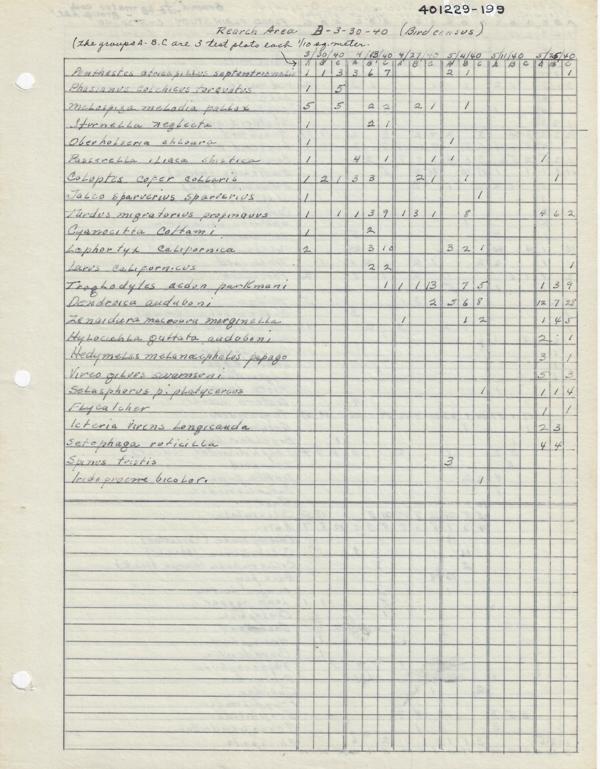 401229-199
Research Area B-3-30-40 (Bird census)
(the groups A-B-C are 3 test plots each 1/10 sq. meter.
3/30/40 4/13/40 4/27/40 5/4/40 5/11/40 5/25/40
A B C A B C A B C A B C A B C A B C
Penthestes atricapillus septentrionalis 1 1 3 3 6 7 2 1 1
Phasianus colchicus torquatus 1 5
Melospiza melodia 5 5 2 2 2 1 1
Sturnella neglecta 1 2 1
Oberholseria chloura 1 1
Passerella iliaca 1 4 1 1 1 1
Colaptes cafer collaris 1 2 1 3 3 2 1 1 1
Falco sparverius sparverius 1 1
Turdus migratorius propinquus 1 1 1 3 9 1 3 1 8 4 6 2
Cyanocitta 1 2
Lophortyx Californica 2 3 10 3 2 1
Larus Californicus 2 2 1
Troglodytes aedon parkmani 1 1 1 13 7 5 1 3 9
Dendroica auduboni 2 5 6 8 12 7 28
Zenaidura macroura marginella 1 1 2 1 4 5
Hylocichla guttata auduboni 2 1
Hedymeles melanocephalus papago 3 1
Vireo gilvus swainsoni 5 3
Selasphorus p. platycercus 1 1 1 4
Flycatcher 1 1
Icteria virens longicauda 2 3
Setophaga ruticilla 4 4
Spinus tristis 3
Iridoprocne bicolor. 1